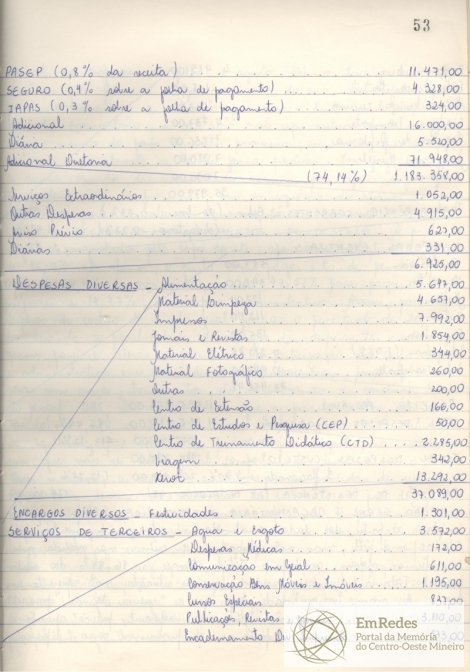 53
PASEP (0,8% da receita) 11.471,00
SEGURO (0,4% sobre a folha de pagamento) 4.328,00
IAPAS (0,3% sobre a folha de pagamento) 324,00
Adicional 16.000,00
Diária 5.520,00
Adicional Diretoria 71.948,00
(74,14%) 1.183.358,00
Serviços Extraordinários 1.052,00
Outras Despesas 4.915,00
Aviso Prévio 627,00
Diárias 331,00
6.925,00
DESPESAS DIVERSAS - Alimentação 5.697,00
Material Limpeza 4.657,00
Impressos 7.992,00
Jornais e Revistas 1.854,00
Material Elétrico 344,00
Material Fotográfico 260,00
Outras 200,00
Centro de Extensão 166,00
Centro de Estudos e Pesquisa (CEP) 50,00
Centro de Treinamento Didático (CTD) 2.285,00
Viagem 342,00
Xerox 13.242,00
37.089,00
ENCARGOS DIVERSOS Festividades 1.301,00
SERVIÇOS DE TERCEIROS - Agua e Esgoto 3.572,00
Despesas Médicas 172,00
Comunicação em Geral 611,00
Conservação Bens Móveis e Imóveis 1.195,00
Cursos Especiais 827,00
Publicações, Revistas e
Encadernamento
EmRedes
Portal da Memória
do Centro-Oeste Mineiro